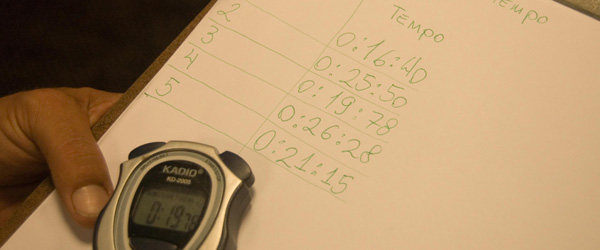 Tempo
Tempo
0:16:40
2 0:25:50
3 0:19:78
4 0:26:28
5 0:21:15
KADIO
0:1978